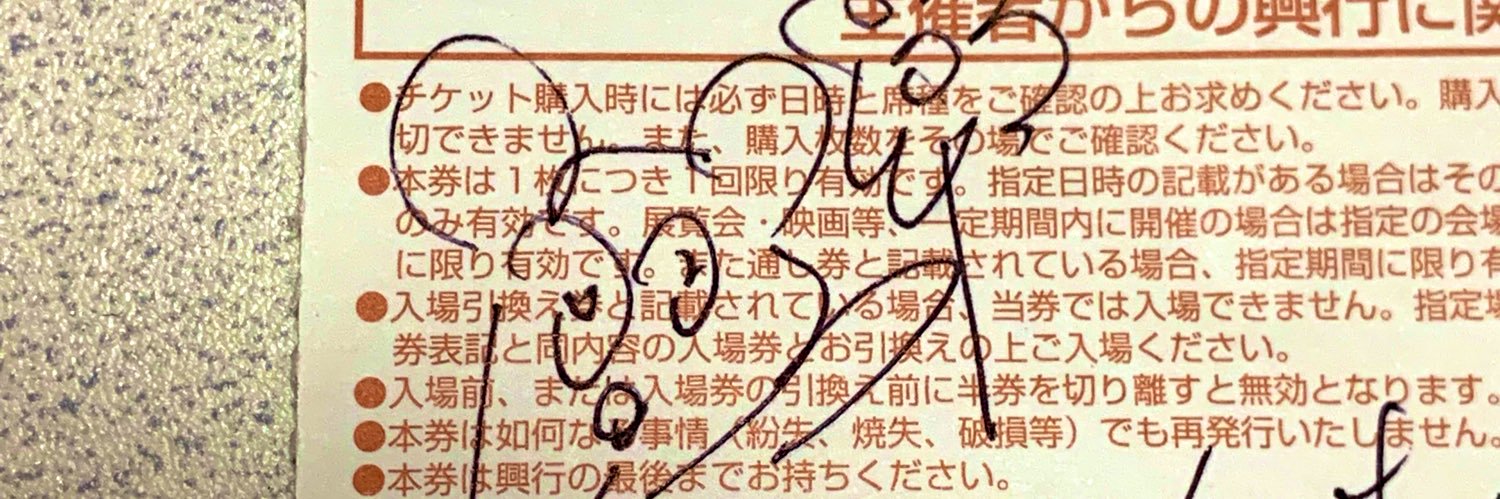 主催者からの興行に関
●チケット購入時には必ず日時と席種をご確認の上お求めください。購入
切できません。また、購入枚数をその場でご確認ください。
●本券は1枚につき1回限り有効です。指定日時の記載がある場合はその
のみ有効です。展覧会・映画等、一定期間内に開催の場合は指定の会場
に限り有効です。また通し券と記載されている場合、指定期間に限り有
●入場引換え券と記載されている場合、当券では入場できません。指定場
券表記と同内容の入場券とお引換えの上ご入場ください。
●入場前、または入場券の引換え前に半券を切り離すと無効となります。
●本券は如何なる事情（紛失、焼失、破損等）でも再発行いたしません。
●本券は興行の最後までお持ちください。